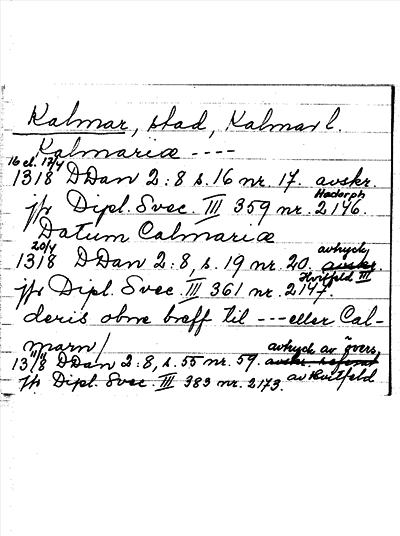 Kalmar, stad, Kalmar l.
Kalmariæ ----
16 el. 17/4
1318 DDan 2:8 s. 16 nr. 17. avskr.
Hadorph
jfr Dipl. Svec. III 359 nr. 2146.
Datum Calmariæ
20/4 avtryck
1318 DDan 2:8, s. 19 nr. 20. avskr.
Hvitfeld III
jfr Dipl. Svec. III 361 nr. 2147.
deris obne breff til --- eller Cal-
marn/
avtryck av övers.
1318 DDan 2:8, s. 55 nr. 59. avskr.
av Hvitfeld
jfr Dipl. Svec. III 383 nr. 2173.